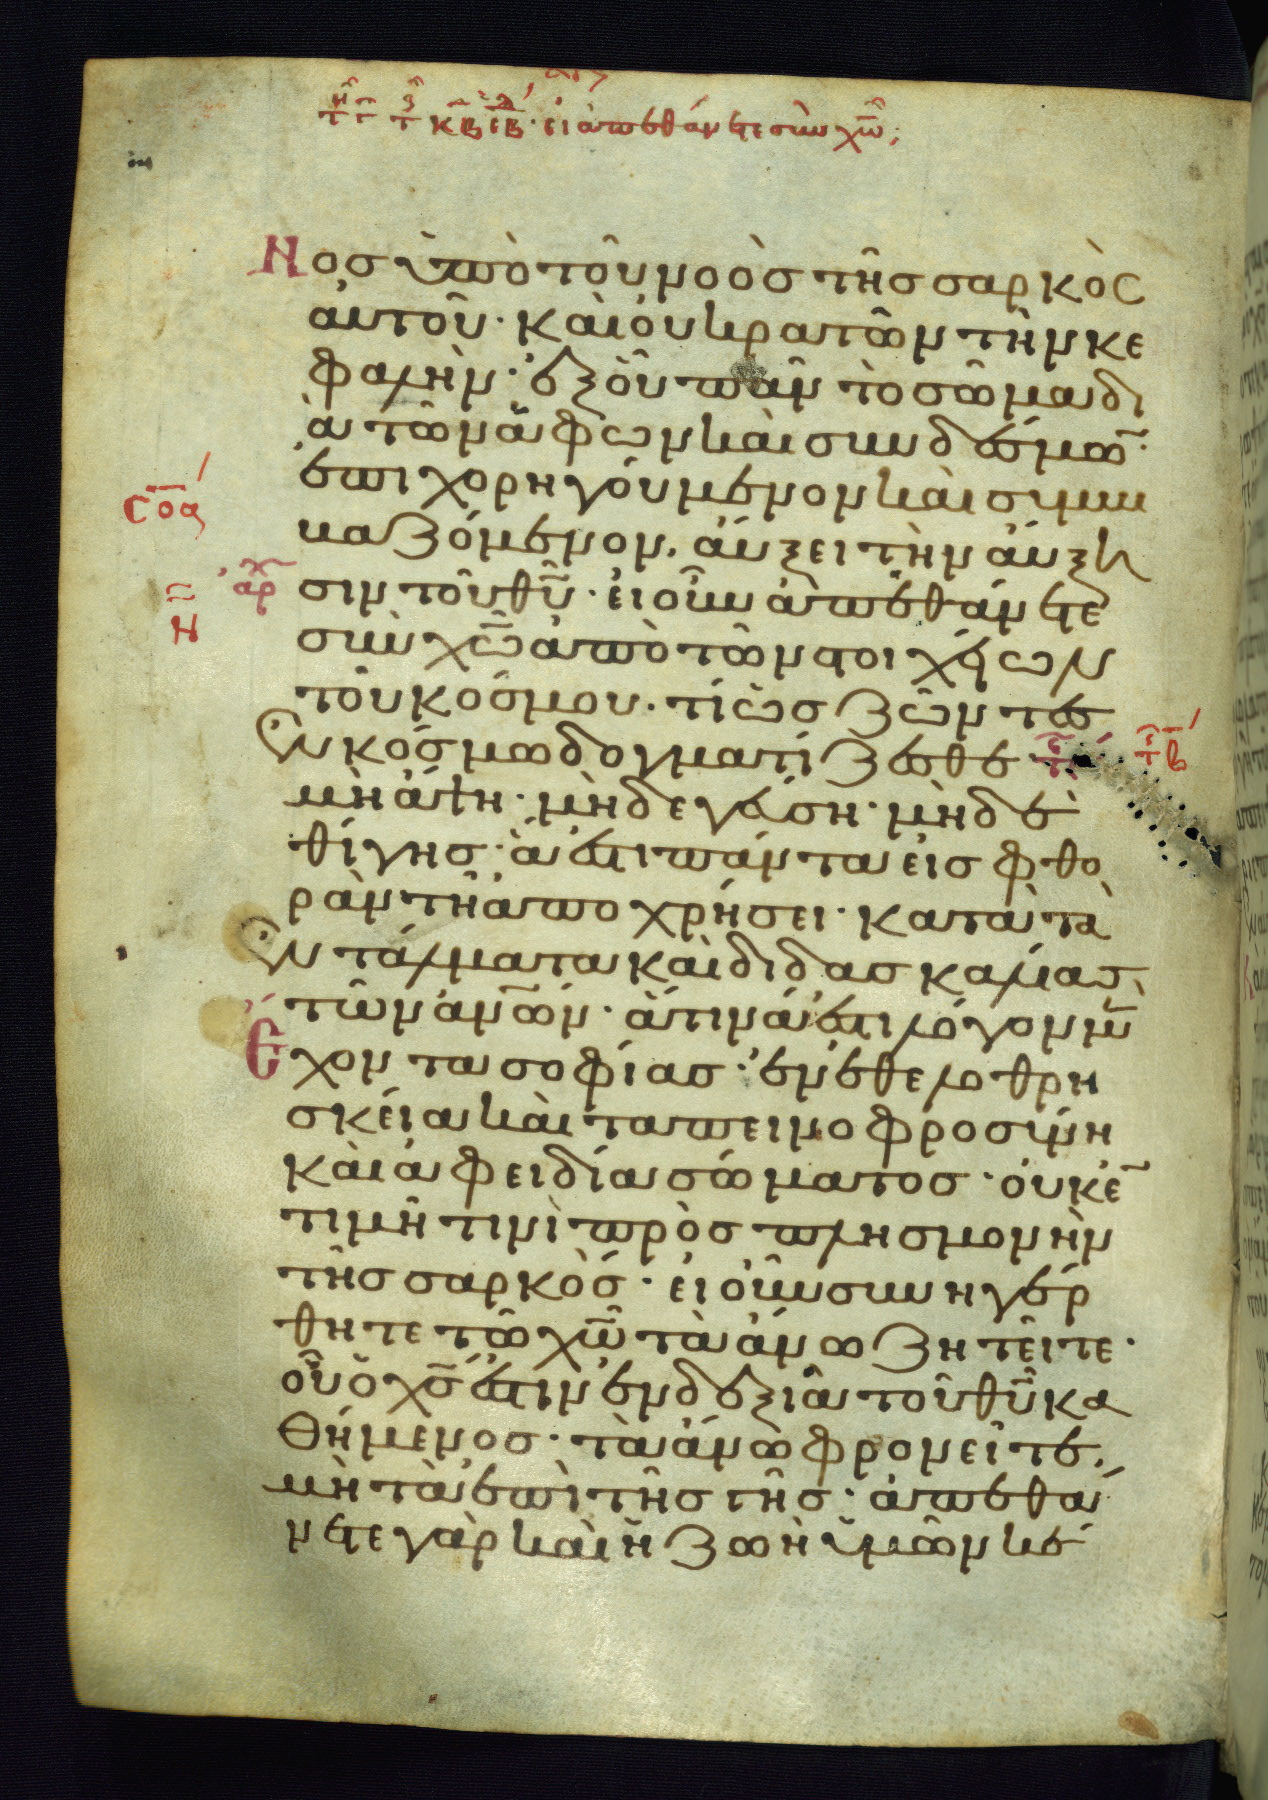 τῆ γ τ κβ εβ· εἰ ἀπεθάνετε σὺν χῶ;
Νος ὑπὸ τοῦ νοὸς τῆς σαρκὸς
αυτοῦ· καὶ οὐ κρατῶν τὴν κε
φαλὴν· ἐξ οὗ πᾶν τὸ σῶμα δι
ὰ τῶν ἁφων καὶ συνδέσμω̅·
ἐπιχορηγούμενον καὶ συμβι
βαζόμενον, αὔξει τὴν αὔξη
σιν τοῦ θῦ· εἰ οὖν ἀπεθάνετε
σὺν χῶ ἀπὸ τῶν στοιχείων
τοῦ κόσμου· τί ὡς ζῶντες
ἐν κόσμω δογματίζεσθε
μὴ ἅψη· μὴ δε γεύση· μὴ δὲ
θίγης· ἅ ἐστι πάντα εἰς φθο
ρὰν τῆ ἀποχρήσει· κατὰ τὰ
ἐντάλματα καὶ διδασκαλίας
τῶν ἀνῶν· ἅτινά ἐστι λόγον μὲ̅
Ἔχοντα σοφίας· ἐν ἐθελοθρη
σκεία καὶ ταπεινοφροσύνη
καὶ ἀφειδία σώματος· οὐκ ἐ̅
τιμῆ τινὶ πρὸς πλησμονὴν
τῆς σαρκός· εἰ οὖν συνηγέρ
θητε τῶ χῶ τὰ ἄνω ζητεῖτε·
οὗ ὁ χς ἐστιν ἐν δεξιᾶ τοῦ θῦ κα
θήμενος· τὰ ἄνω φρονεῖτε,
μὴ τὰ ἐπὶ τῆς γῆς· ἀπεθά
νετε γὰρ καὶ ἡ ζωὴ ὑμῶν κέ
σοα
ἀρχ
ν